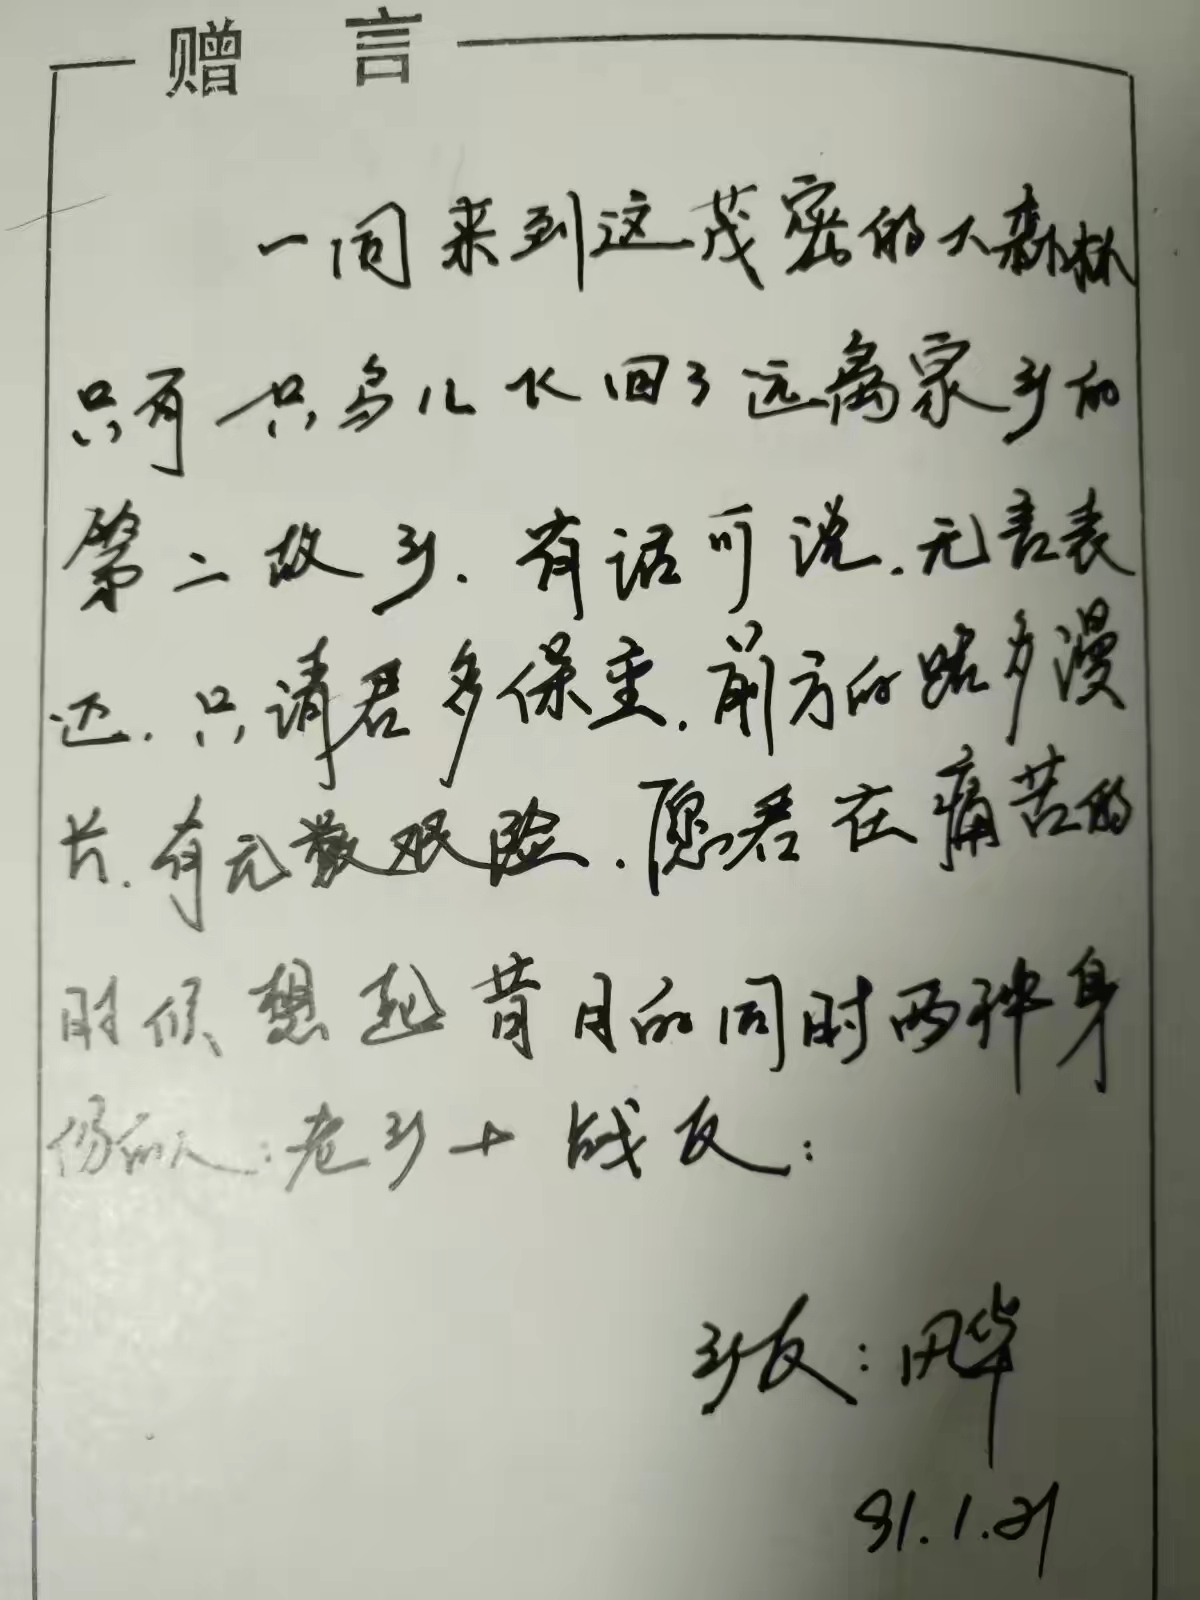 赠言
一同来到这茂密的大森林
只有一只鸟儿飞回了远离家乡的
第二故乡.有话可说.无言表
达.只请君多保重.前方的路多漫
长.有无数艰险.愿君在痛苦的
时候想起昔日的同时两种身
份的人:老乡+战友:
乡友:田华
91.1.21